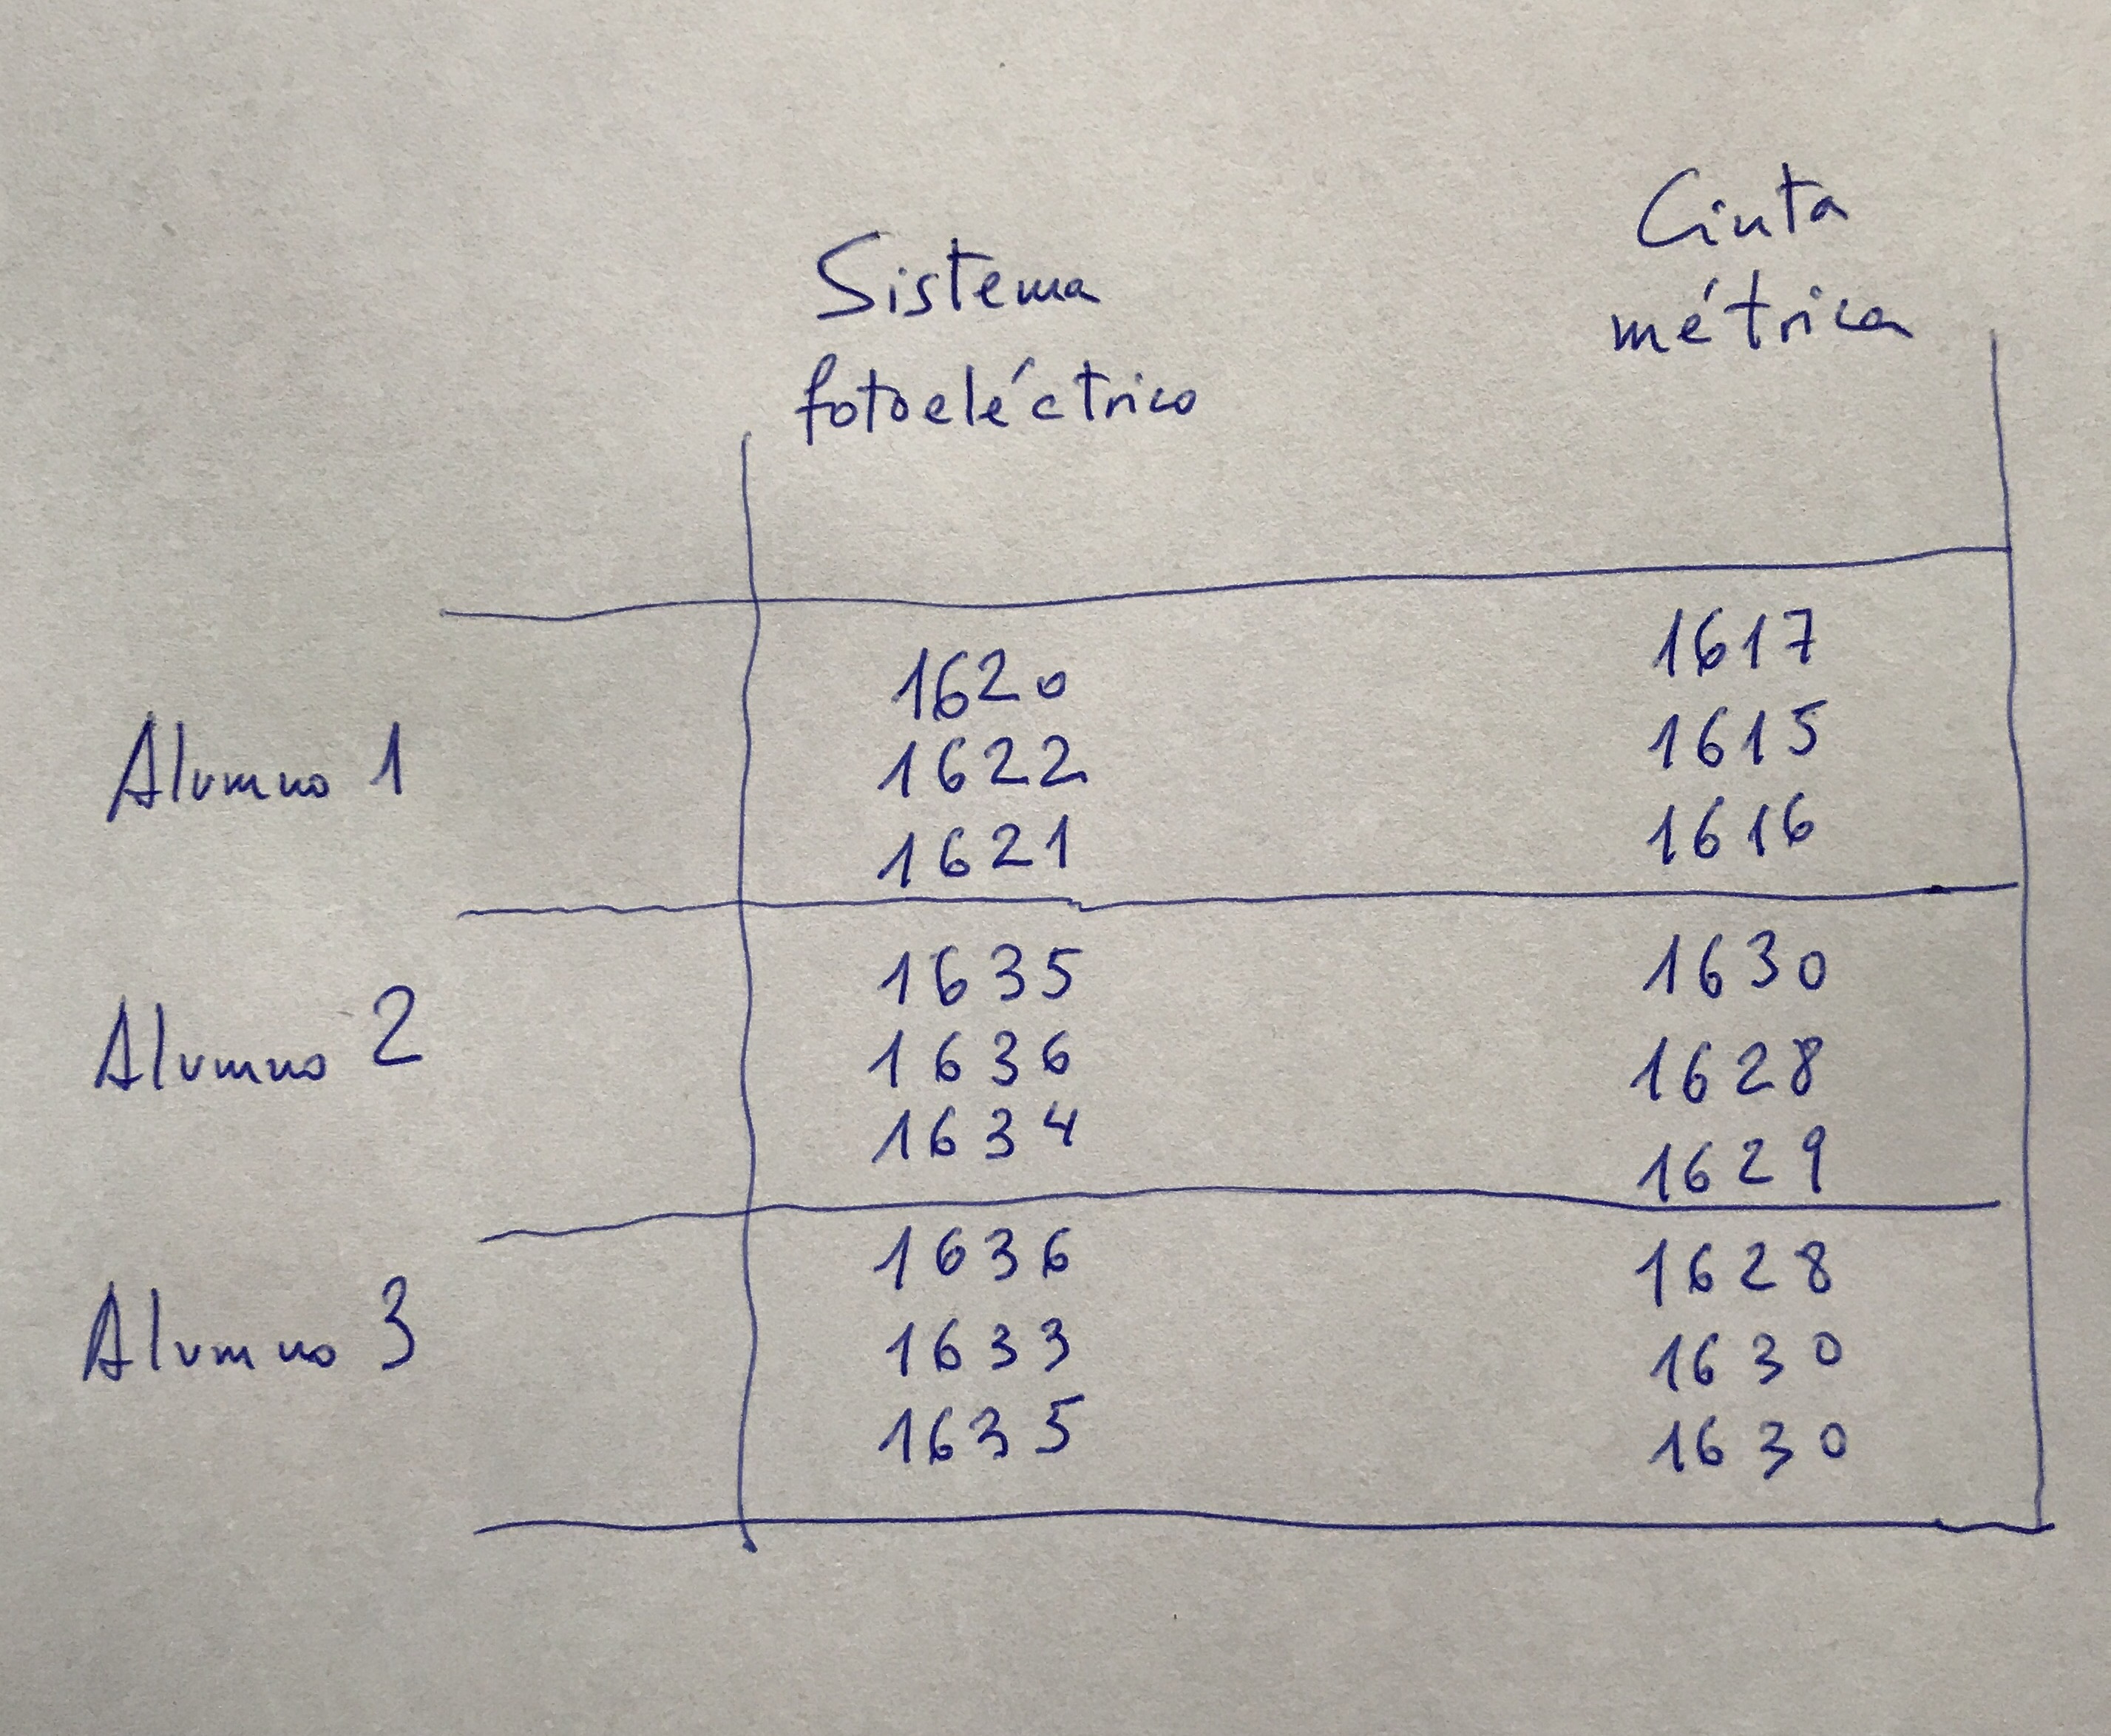 Sistema
fotoeléctrico
Cinta
métrica
Alumno 1
1620 1617
1622 1615
1621 1616
Alumno 2
1635 1630
1636 1628
1634 1629
Alumno 3
1636 1628
1633 1630
1635 1630